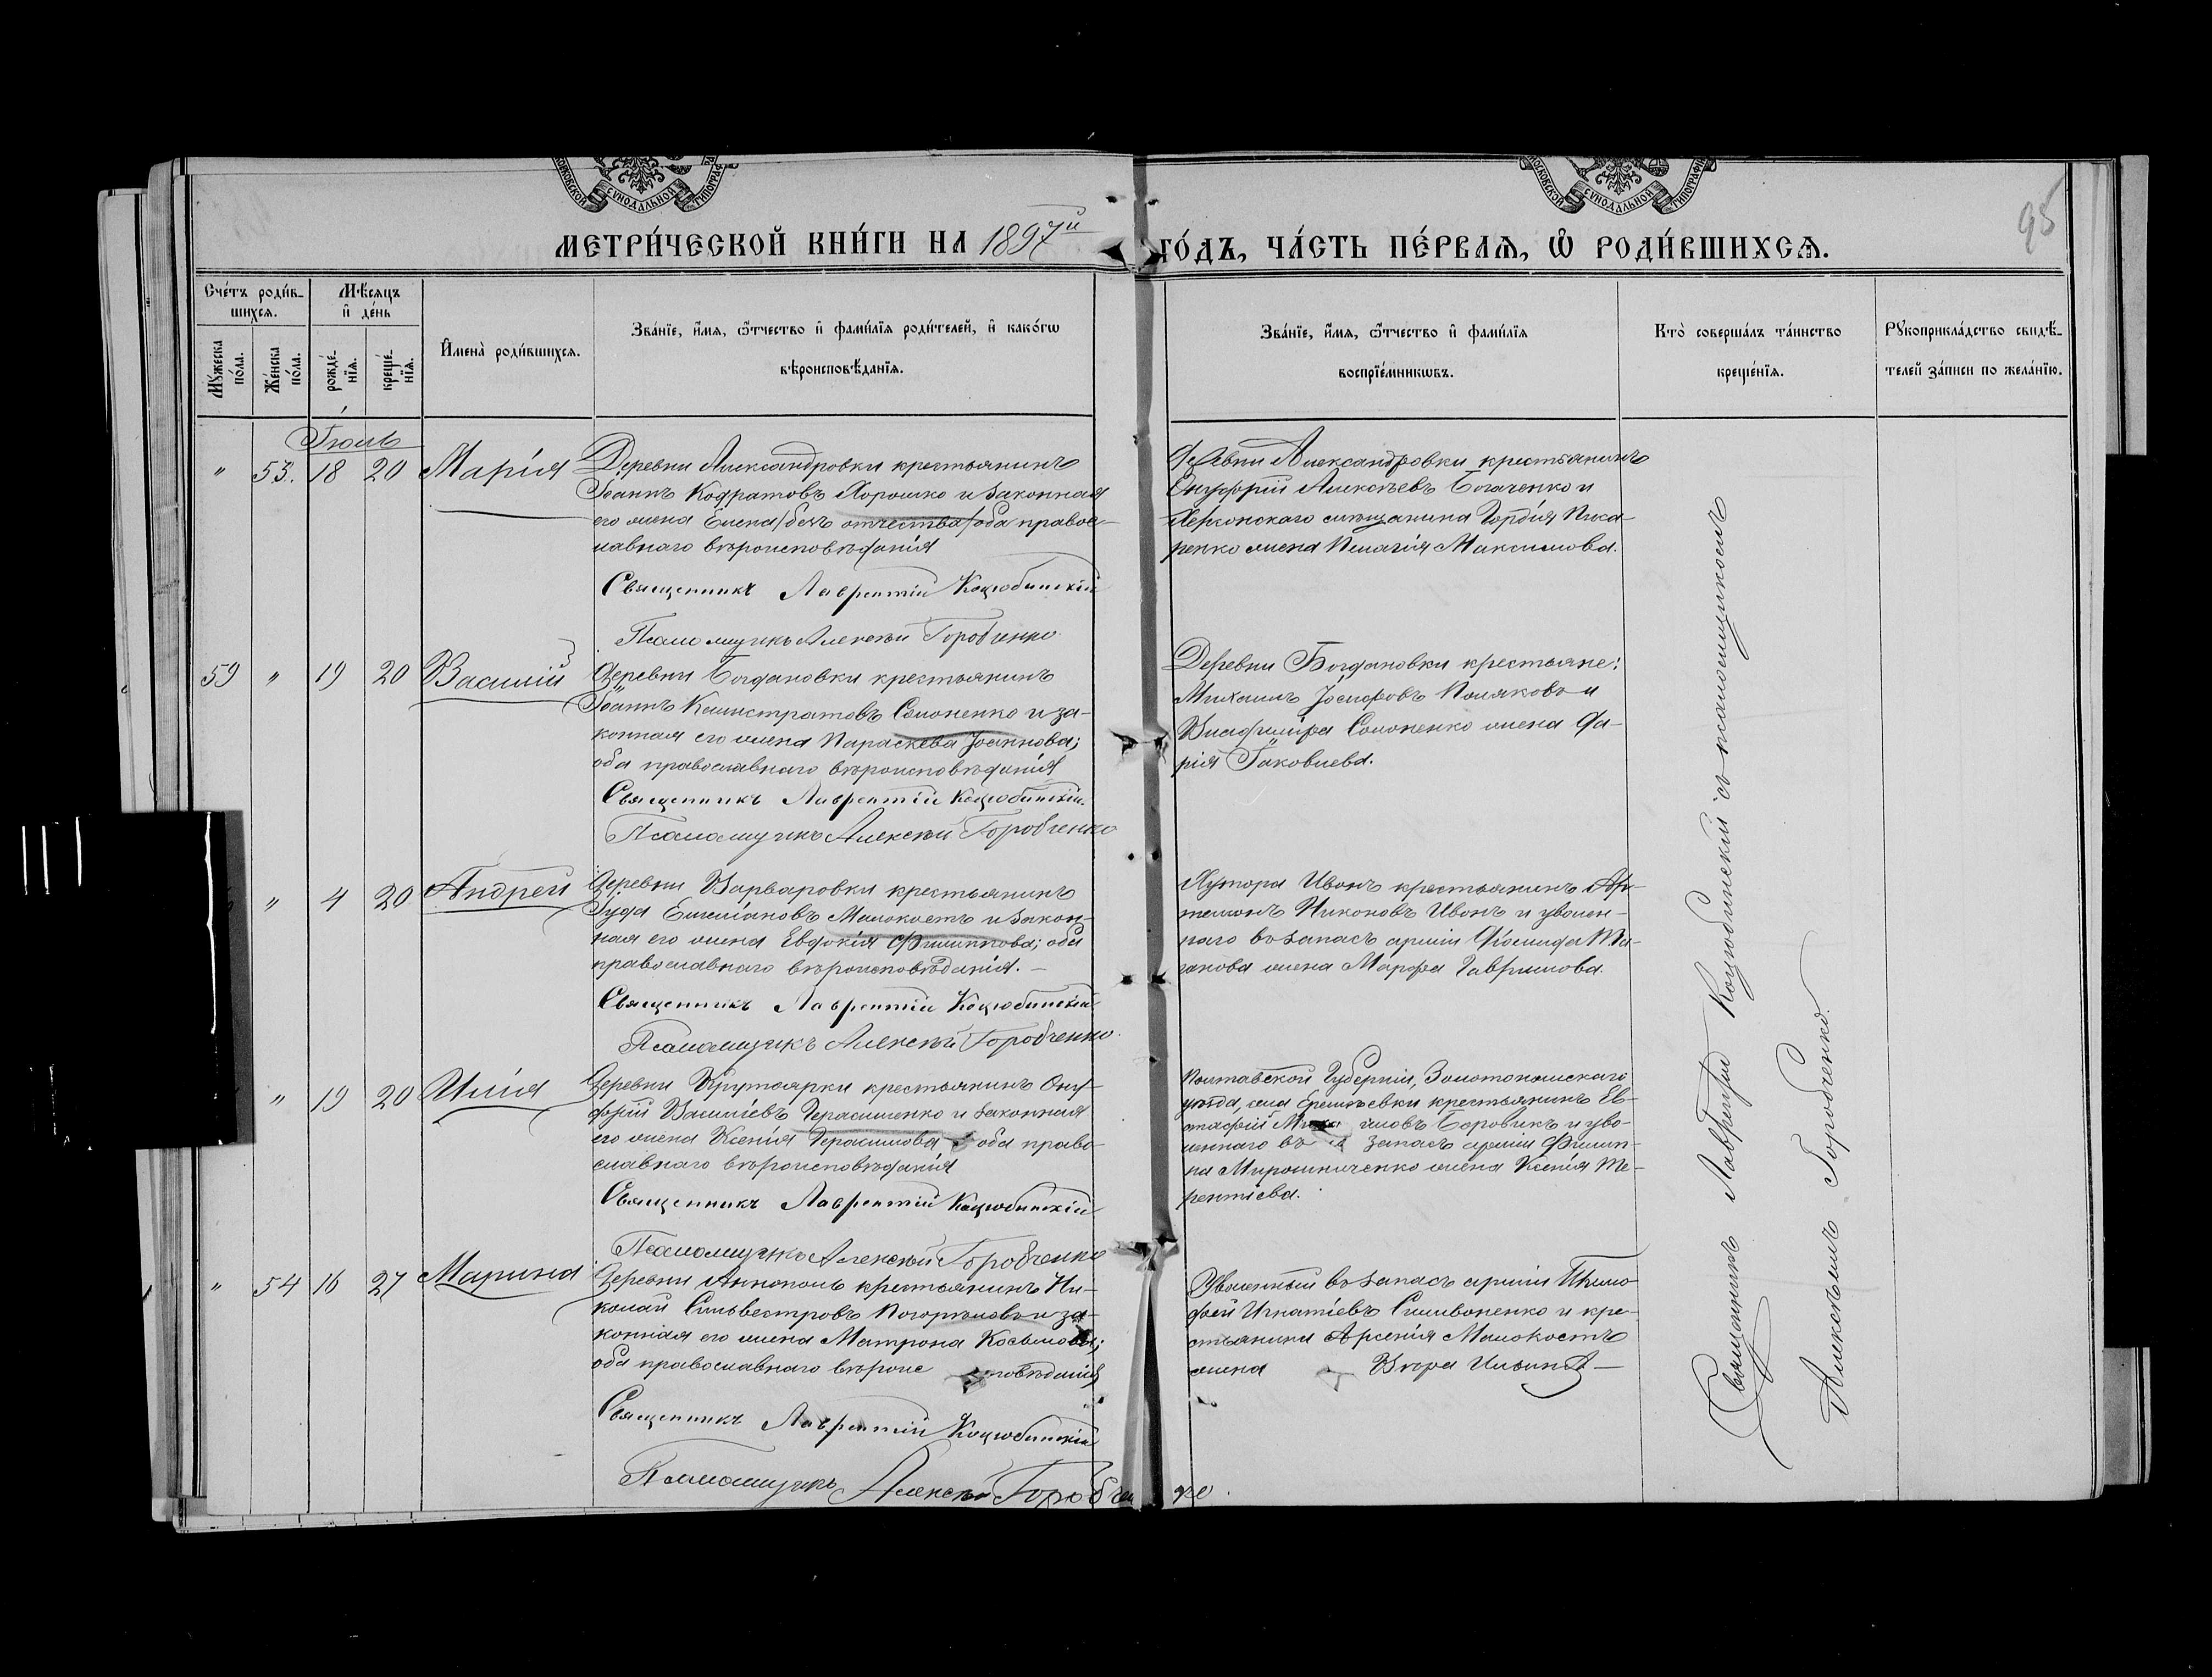 МОСКОВСКОЙ СУНОДАЛЬНОЙ ТИПОГРАФ
МОСКОВСКОЙ СУНОДАЛЬНОЙ ТИПОГРАФ
95
МЕТРИ́ЧЕСКОЙ КНИ́ГИ НА 1897й ГО́ДЪ, ЧА́СТЬ ПЕ́РВАѦ, Ѿ РОДИ́ВШИХСѦ.
Сче́тъ роди́в-
шихсѧ.
Мꙋ́жеска по́ла.
Же́нска по́ла.
Мѣ́сѧцъ
и де́нь
рожде́-
нїѧ.
креще́-
нїѧ.
Имена̀ роди́вшихсѧ.
Зва́нїе, и́мѧ, ѻ́тчество и фами́лїѧ роди́телей, и како́гѡ
вѣроисповѣ́данїѧ.
Зва́нїе, и́мѧ, ѻ́тчество и фами́лїѧ
воспрїе́мникѡвъ.
Кто̀ соверша́лъ та́инство
креще́нїѧ.
Рꙋкоприкла́дство свидѣ́-
телей за́писи по жела́нїю.
Іюль
" 53. 18 20 Марія
Деревни Александровки крестьянинъ
Іоаннъ Кодратовъ Хорошко и законная
его жена Елена /безъ отчества/ оба правос-
лавнаго вѣроисповѣданія
Священникъ Лаврентій Коцюбинскій
Псаломщикъ Алексѣй Горобченко
Деревни Александровки крестьянинъ
Онуфрій Алексѣевъ Богаченко и
Херсонскаго мѣщанина Гордія Писа-
ренко жена Пелагія Максимова.
59 " 19 20 Василій
Деревни Богдановки крестьянинъ
Іоаннъ Калистратовъ Соломенко и за-
конная его жена Параскева Іоаннова;
оба православнаго вѣроисповѣданія
Священникъ Лаврентій Коцюбинскій.
Псаломщикъ Алексѣй Горобченко
Деревни Богдановки крестьяне:
Михаилъ Іосифовъ Поляковъ и
Владиміра Соломенко жена Да-
рія Іаковлева.
" 4 20 Андрей
Деревни Варваровки крестьянинъ
Іуда Емеліановъ Малокостъ и закон-
ная его жена Евдокія Филиппова; оба
православнаго вѣроисповѣданія. —
Священникъ Лаврентій Коцюбинскій
Псаломщикъ Алексѣй Горобченко
Хутора Ивонъ крестьянинъ Ар-
темонъ Никоновъ Ивонъ и уволен-
наго въ запасъ арміи
жена Марфа Гаврилова.
" 19 20 Илія
Деревни Крутоярки крестьянинъ Ону-
фрій Василіевъ Герасименко и законная
его жена Ксенія Герасимова оба право-
славнаго вѣроисповѣданія
Священникъ Лаврентій Коцюбинскій
Псаломщикъ Алексѣй Горобченко
Полтавской Губерніи, Золотоношскаго
уѣзда, села Еремѣевки крестьянинъ Ев-
стафій Боровикъ и уво-
леннаго въ запасъ арміи Филип-
па Мирошниченко жена Ксенія Те-
рентіева.
" 54 16 27 Марина
Деревни Аннополь крестьянинъ Ни-
колай Сильвестровъ Погорѣловъ и за-
конная его жена Матрона Косьмова;
оба православнаго вѣроисповѣданія
Священникъ Лаврентій Коцюбинскій
Псаломщикъ Алексѣй Горобченко
Уволенный въ запасъ арміи Тимо-
фей Игнатіевъ Силивоненко и кре-
стьянина Арсенія Малокостъ
жена Вѣра Ильина —
Священникъ Лаврентій Коцюбинскій съ псаломщикомъ
Алексѣемъ Горобченко.